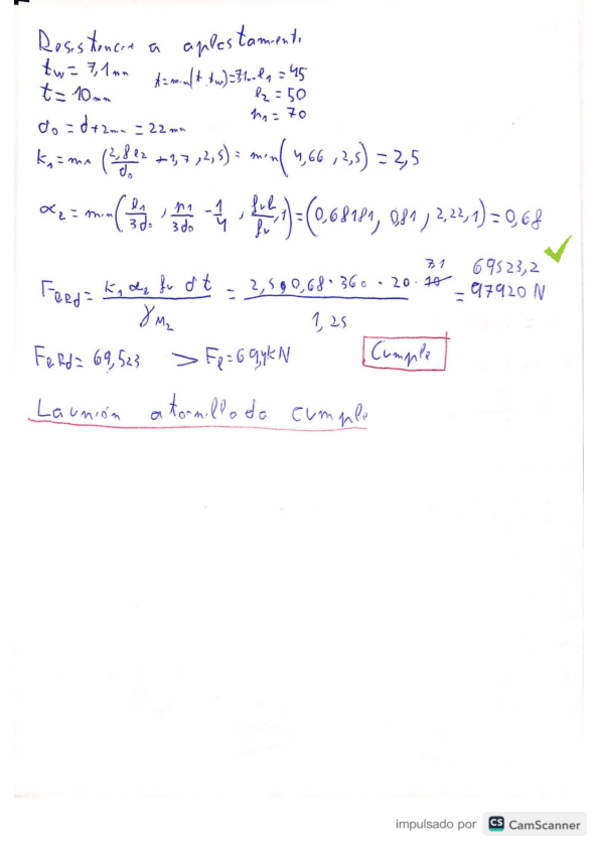 Resistencia a aplastamiento
tw = 7,1mm t=min(t,tw)=7,1mm e1 = 45
t = 10mm e2 = 50
p1 = 70
d0 = d+2mm = 22mm
k1 = min (2,8 e2/d0 - 1,7, 2,5) = min(4,66, 2,5) = 2,5
α2 = min(e1/3d0, p1/3d0 - 1/4, fub/fu, 1) = (0,68181, 0,81, 2,22, 1) = 0,68
FbRd = k1 α2 fu d t / γM2 = 2,5 · 0,68 · 360 · 20 · 10 7.1 / 1,25 = 97920 N 69523,2
FbRd = 69,523 > Fl = 69,4kN Cumple
La unión atornillada cumple
impulsado por CS CamScanner